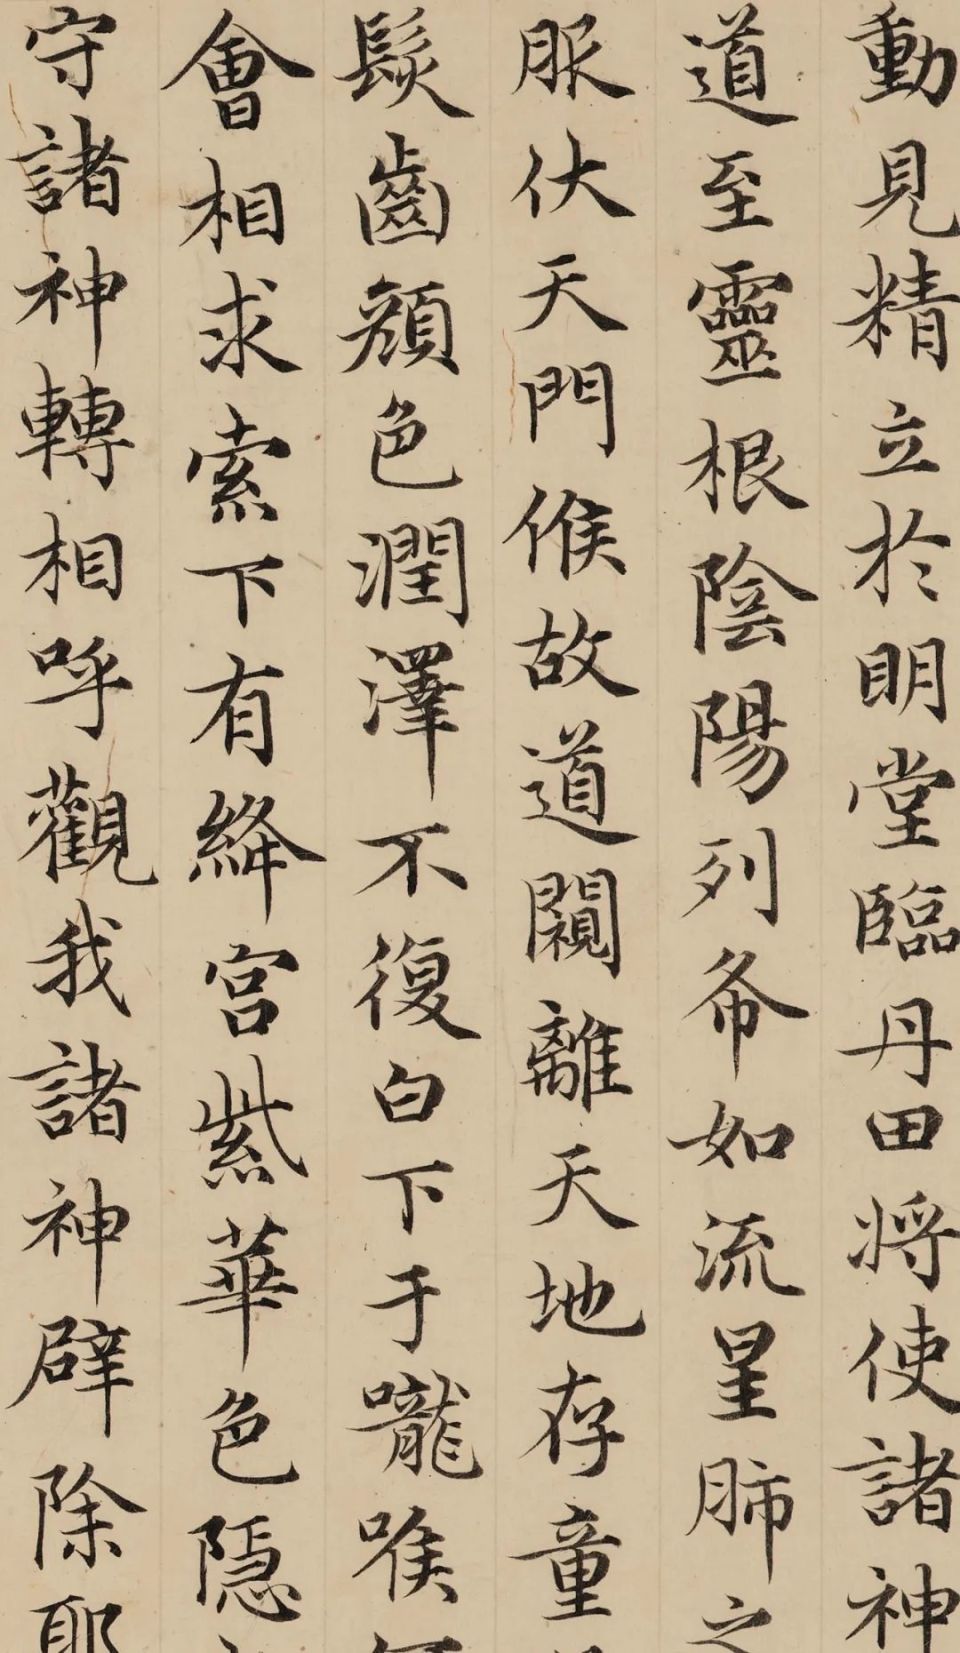 動見精立於明堂臨丹田将使諸神
道至靈根陰陽列布如流星肺之
服伏天門候故道闚離天地存童
鬚齒顏色潤澤不復白下于嚨喉
會相求索下有絳宮紫華色隱
守諸神轉相呼觀我諸神辟除耶